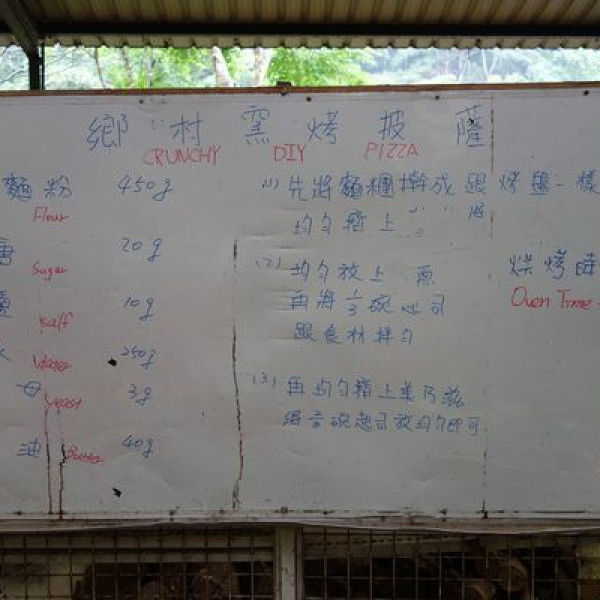 鄉村窯烤披薩
CRUNCHY DIY PIZZA
麵粉 450g
Flour
20g
Sugar
10g
salt
Water 250g
母 3g
yeast
油 40g
Butter
(1) 先將麵糰擀成跟烤盤一樣
均勻擠上
(2) 均勻放上
再將 1/3 碗起司
跟食材拌勻
(3) 再均勻擠上美乃滋
碗起司放均勻即可
燒烤時
Oven Time